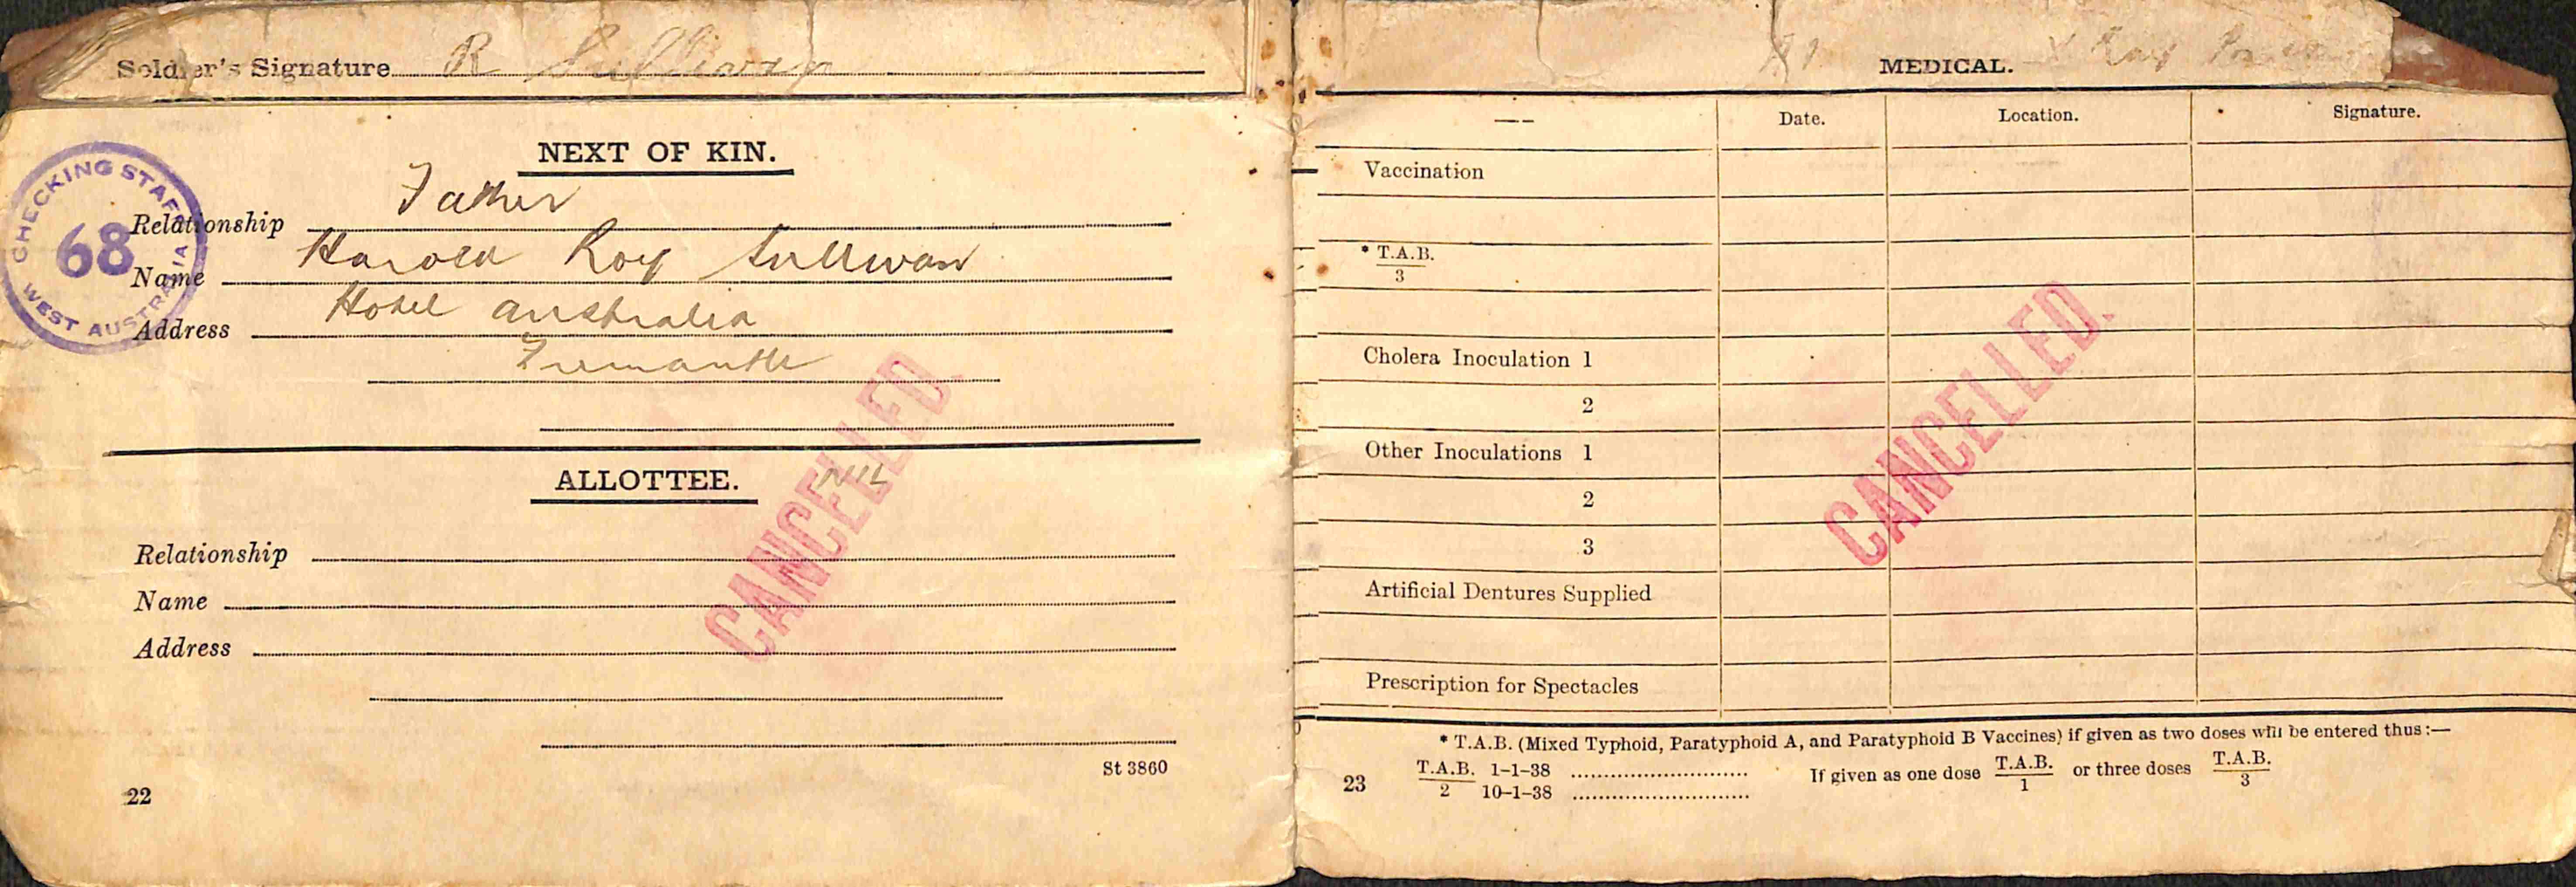 Soldier's Signature R Sullivan
NEXT OF KIN.
CHECKING STAFF
68
WEST AUSTRALIA
Relationship Father
Name Harold Roy Sullivan
Address Hotel Australia
Fremantle
CANCELLED.
ALLOTTEE. NIL
Relationship
Name
Address
St 3860
22
X Ray
MEDICAL.
Date. Location. Signature.
Vaccination
* T.A.B.
3
Cholera Inoculation 1
2
Other Inoculations 1
2
3
CANCELLED.
Artificial Dentures Supplied
Prescription for Spectacles
* T.A.B. (Mixed Typhoid, Paratyphoid A, and Paratyphoid B Vaccines) if given as two doses will be entered thus:—
T.A.B. 1-1-38 If given as one dose T.A.B. or three doses T.A.B.
2 10-1-38 1 3
23